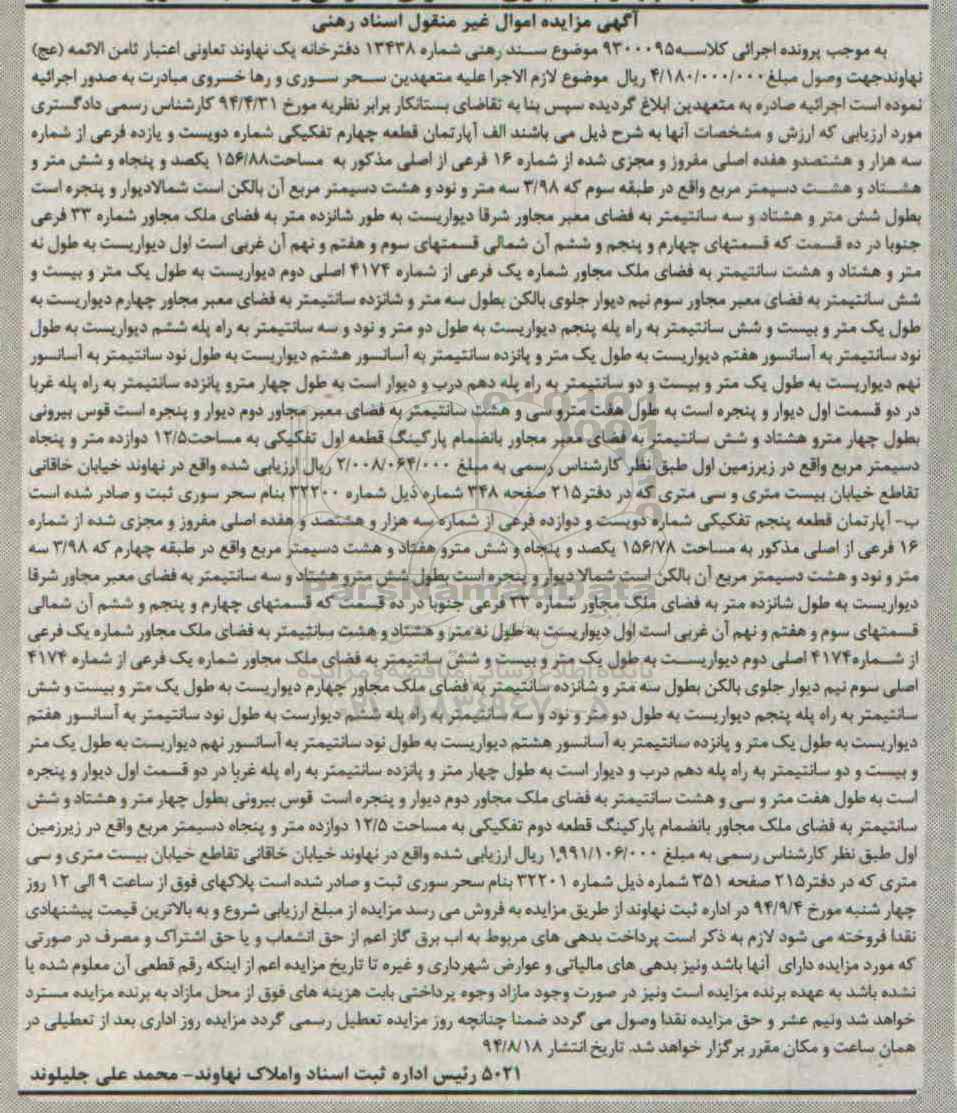 آگهی مزایده اموال غیر منقول اسناد رهنی
به موجب پرونده اجرائی کلاسه۹۳۰۰۰۹۵ موضوع سند رهنی شماره ۱۳۴۳۸ دفترخانه یک نهاوند تعاونی اعتبار ثامن الائمه (عج)
نهاوندجهت وصول مبلغ۴/۱۸۰/۰۰۰/۰۰۰ ریال موضوع لازم الاجرا علیه متعهدین سحر سوری و رها خسروی مبادرت به صدور اجرائیه
نموده است اجرائیه صادره به متعهدین ابلاغ گردیده سپس بنا به تقاضای بستانکار برابر نظریه مورخ ۹۴/۴/۳۱ کارشناس رسمی دادگستری
مورد ارزیابی که ارزش و مشخصات آنها به شرح ذیل می باشند الف آپارتمان قطعه چهارم تفکیکی شماره دویست و یازده فرعی از شماره
سه هزار و هشتصدو هفده اصلی مفروز و مجزی شده از شماره ۱۶ فرعی از اصلی مذکور به مساحت۱۵۶/۸۸ یکصد و پنجاه و شش متر و
هشتاد و هشت دسیمتر مربع واقع در طبقه سوم که ۳/۹۸ سه متر و نود و هشت دسیمتر مربع آن بالکن است شمالادیوار و پنجره است
بطول شش متر و هشتاد و سه سانتیمتر به فضای معبر مجاور شرقا دیواریست به طور شانزده متر به فضای ملک مجاور شماره ۳۳ فرعی
جنوبا در ده قسمت که قسمتهای چهارم و پنجم و ششم آن شمالی قسمتهای سوم و هفتم و نهم آن غربی است اول دیواریست به طول نه
متر و هشتاد و هشت سانتیمتر به فضای ملک مجاور شماره یک فرعی از شماره ۴۱۷۴ اصلی دوم دیواریست به طول یک متر و بیست و
شش سانتیمتر به فضای معبر مجاور سوم نیم دیوار جلوی بالکن بطول سه متر و شانزده سانتیمتر به فضای معبر مجاور چهارم دیواریست به
طول یک متر و بیست و شش سانتیمتر به راه پله پنجم دیواریست به طول دو متر و نود و سه سانتیمتر به راه پله ششم دیواریست به طول
نود سانتیمتر به آسانسور هفتم دیواریست به طول یک متر و پانزده سانتیمتر به آسانسور هشتم دیواریست به طول نود سانتیمتر به آسانسور
نهم دیواریست به طول یک متر و بیست و دو سانتیمتر به راه پله دهم درب و دیوار است به طول چهار مترو پانزده سانتیمتر به راه پله غربا
در دو قسمت اول دیوار و پنجره است به طول هفت مترو سی و هشت سانتیمتر به فضای معبر مجاور دوم دیوار و پنجره است قوس بیرونی
بطول چهار مترو هشتاد و شش سانتیمتر به فضای معبر مجاور بانضمام پارکینگ قطعه اول تفکیکی به مساحت۱۲/۵ دوازده متر و پنجاه
دسیمتر مربع واقع در زیرزمین اول طبق نظر کارشناس رسمی به مبلغ ۲/۰۰۸/۰۶۴/۰۰۰ ریال ارزیابی شده واقع در نهاوند خیابان خاقانی
تقاطع خیابان بیست متری و سی متری که در دفتر۲۱۵ صفحه ۳۴۸ شماره ذیل شماره ۳۲۲۰۰ بنام سحر سوری ثبت و صادر شده است
ب- آپارتمان قطعه پنجم تفکیکی شماره دویست و دوازده فرعی از شماره سه هزار و هشتصد و هفده اصلی مفروز و مجزی شده از شماره
۱۶ فرعی از اصلی مذکور به مساحت ۱۵۶/۷۸ یکصد و پنجاه و شش مترو هفتاد و هشت دسیمتر مربع واقع در طبقه چهارم که ۳/۹۸ سه
متر و نود و هشت دسیمتر مربع آن بالکن است شمالا دیوار و پنجره است بطول شش مترو هشتاد و سه سانتیمتر به فضای معبر مجاور شرقا
دیواریست به طول شانزده متر به فضای ملک مجاور شماره ۳۳ فرعی جنوبا در ده قسمت که قسمتهای چهارم و پنجم و ششم آن شمالی
قسمتهای سوم و هفتم و نهم آن غربی است اول دیواریست به طول نه متر و هشتاد و هشت سانتیمتر به فضای ملک مجاور شماره یک فرعی
از شماره۴۱۷۴ اصلی دوم دیواریست به طول یک متر و بیست و شش سانتیمتر به فضای ملک مجاور شماره یک فرعی از شماره ۴۱۷۴
اصلی سوم نیم دیوار جلوی بالکن بطول سه متر و شانزده سانتیمتر به فضای ملک مجاور چهارم دیواریست به طول یک متر و بیست و شش
سانتیمتر به راه پله پنجم دیواریست به طول دو متر و نود و سه سانتیمتر به راه پله ششم دیوارست به طول نود سانتیمتر به آسانسور هفتم
دیواریست به طول یک متر و پانزده سانتیمتر به آسانسور هشتم دیواریست به طول نود سانتیمتر به آسانسور نهم دیواریست به طول یک متر
و بیست و دو سانتیمتر به راه پله دهم درب و دیوار است به طول چهار متر و پانزده سانتیمتر به راه پله غربا در دو قسمت اول دیوار و پنجره
است به طول هفت متر و سی و هشت سانتیمتر به فضای ملک مجاور دوم دیوار و پنجره است قوس بیرونی بطول چهار متر و هشتاد و شش
سانتیمتر به فضای ملک مجاور بانضمام پارکینگ قطعه دوم تفکیکی به مساحت ۱۲/۵ دوازده متر و پنجاه دسیمتر مربع واقع در زیرزمین
اول طبق نظر کارشناس رسمی به مبلغ ۱,۹۹۱/۱۰۶/۰۰۰ ریال ارزیابی شده واقع در نهاوند خیابان خاقانی تقاطع خیابان بیست متری و سی
متری که در دفتر۲۱۵ صفحه ۳۵۱ شماره ذیل شماره ۳۲۲۰۱ بنام سحر سوری ثبت و صادر شده است پلاکهای فوق از ساعت ۹ الی ۱۲ روز
چهار شنبه مورخ ۹۴/۹/۴ در اداره ثبت نهاوند از طریق مزایده به فروش می رسد مزایده از مبلغ ارزیابی شروع و به بالاترین قیمت پیشنهادی
نقدا فروخته می شود لازم به ذکر است پرداخت بدهی های مربوط به اب برق گاز اعم از حق انشعاب و یا حق اشتراک و مصرف در صورتی
که مورد مزایده دارای آنها باشد ونیز بدهی های مالیاتی و عوارض شهرداری و غیره تا تاریخ مزایده اعم از اینکه رقم قطعی آن معلوم شده یا
نشده باشد به عهده برنده مزایده است ونیز در صورت وجود مازاد وجوه پرداختی بابت هزینه های فوق از محل مازاد به برنده مزایده مسترد
خواهد شد ونیم عشر و حق مزایده نقدا وصول می گردد ضمنا چنانچه روز مزایده تعطیل رسمی گردد مزایده روز اداری بعد از تعطیلی در
همان ساعت و مکان مقرر برگزار خواهد شد. تاریخ انتشار ۹۴/۸/۱۸
۵۰۲۱ رئیس اداره ثبت اسناد واملاک نهاوند- محمد علی جلیلوند
ParsNamadData